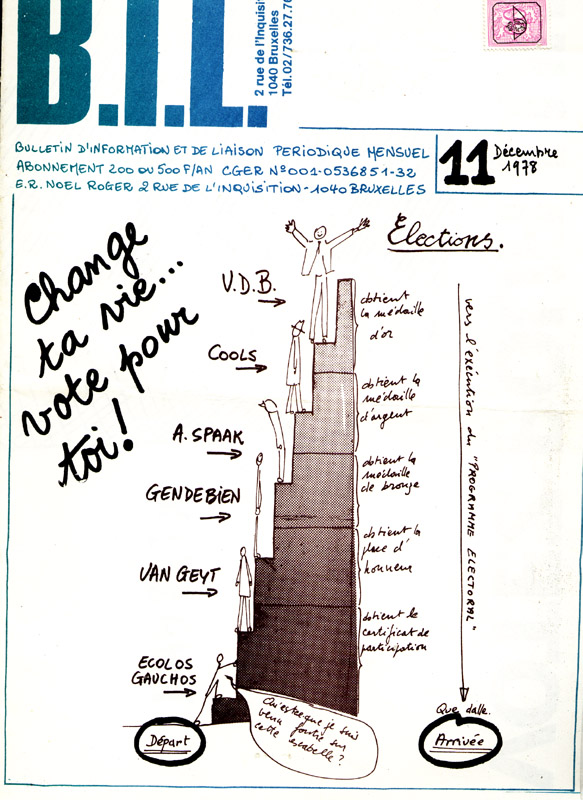 B.I.L.
2 rue de l'Inquisit
1040 Bruxelles
Tél. 02/736.27.70
BULLETIN D'INFORMATION ET DE LIAISON PERIODIQUE MENSUEL
ABONNEMENT 200 OU 500 F/AN CGER N°001-0536851-32
E.R. NOEL ROGER 2 RUE DE L'INQUISITION - 1040 BRUXELLES
11 Décembre
1978
Change
ta vie...
vote pour
toi!
Elections.
V.D.B.
COOLS
A. SPAAK
GENDEBIEN
VAN GEYT
ECOLOS
GAUCHOS
obtient
la médaille
d'or
obtient la
médaille
d'argent
obtient la
médaille
de bronze
obtient la
place d'
honneur
obtient le
certificat de
participation
vers l'exécution du "PROGRAMME ELECTORAL"
Qu'est ce que je suis
venu foutre sur
cette escabelle?
Départ
Que dalle.
Arrivée